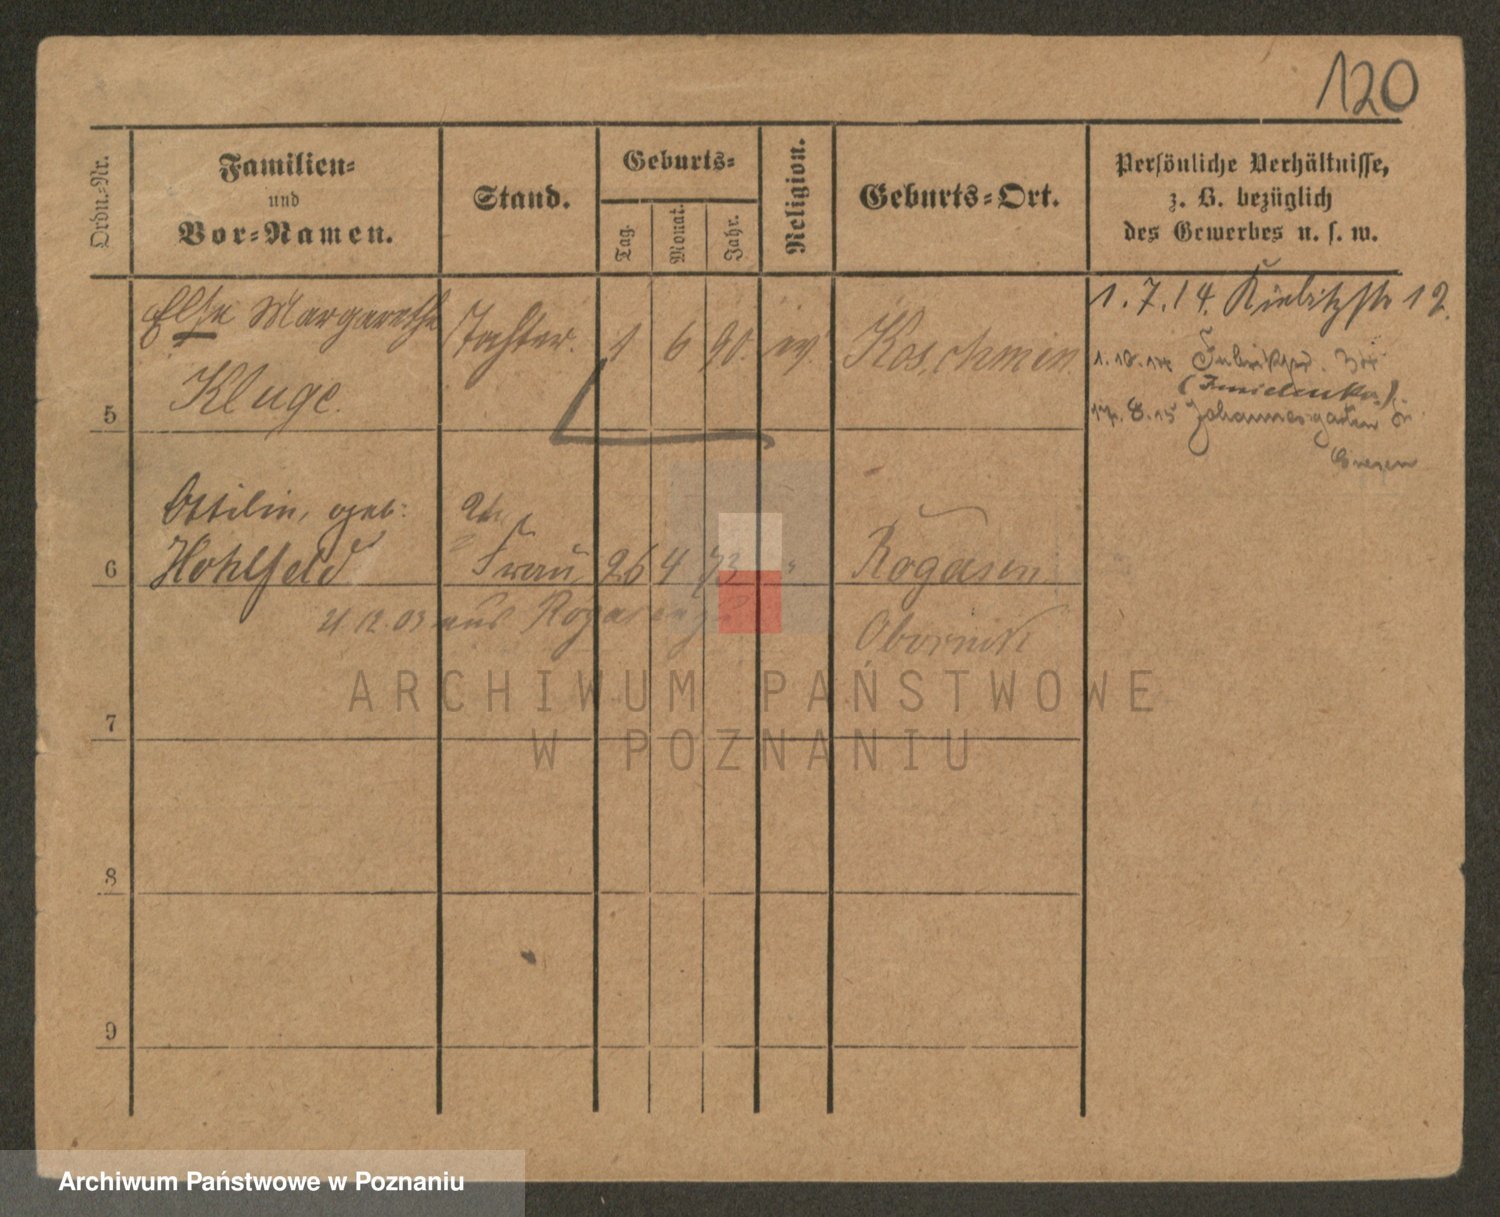 120
Ordn.-Nr.
Familien-
und
Vor-Namen.
Stand.
Geburts-
Tag.
Monat.
Jahr.
Religion.
Geburts-Ort.
Persönliche Verhältnisse,
z. B. bezüglich
des Gewerbes u. s. w.
5
Else Margarethe
Kluge.
Tochter.
1
6
90.
ev.
Koschmin.
1.7.14. Kiebitzstr 12.
1.10.14
17.8.15 Johannesgarten
Gnesen
6
Ottilie, geb:
Hohlfeld
Frau
26
4
73
"
Rogasen
Obornik
21.12.03 aus Rogasen
7
8
9
ARCHIWUM PAŃSTWOWE
W POZNANIU
Archiwum Państwowe w Poznaniu